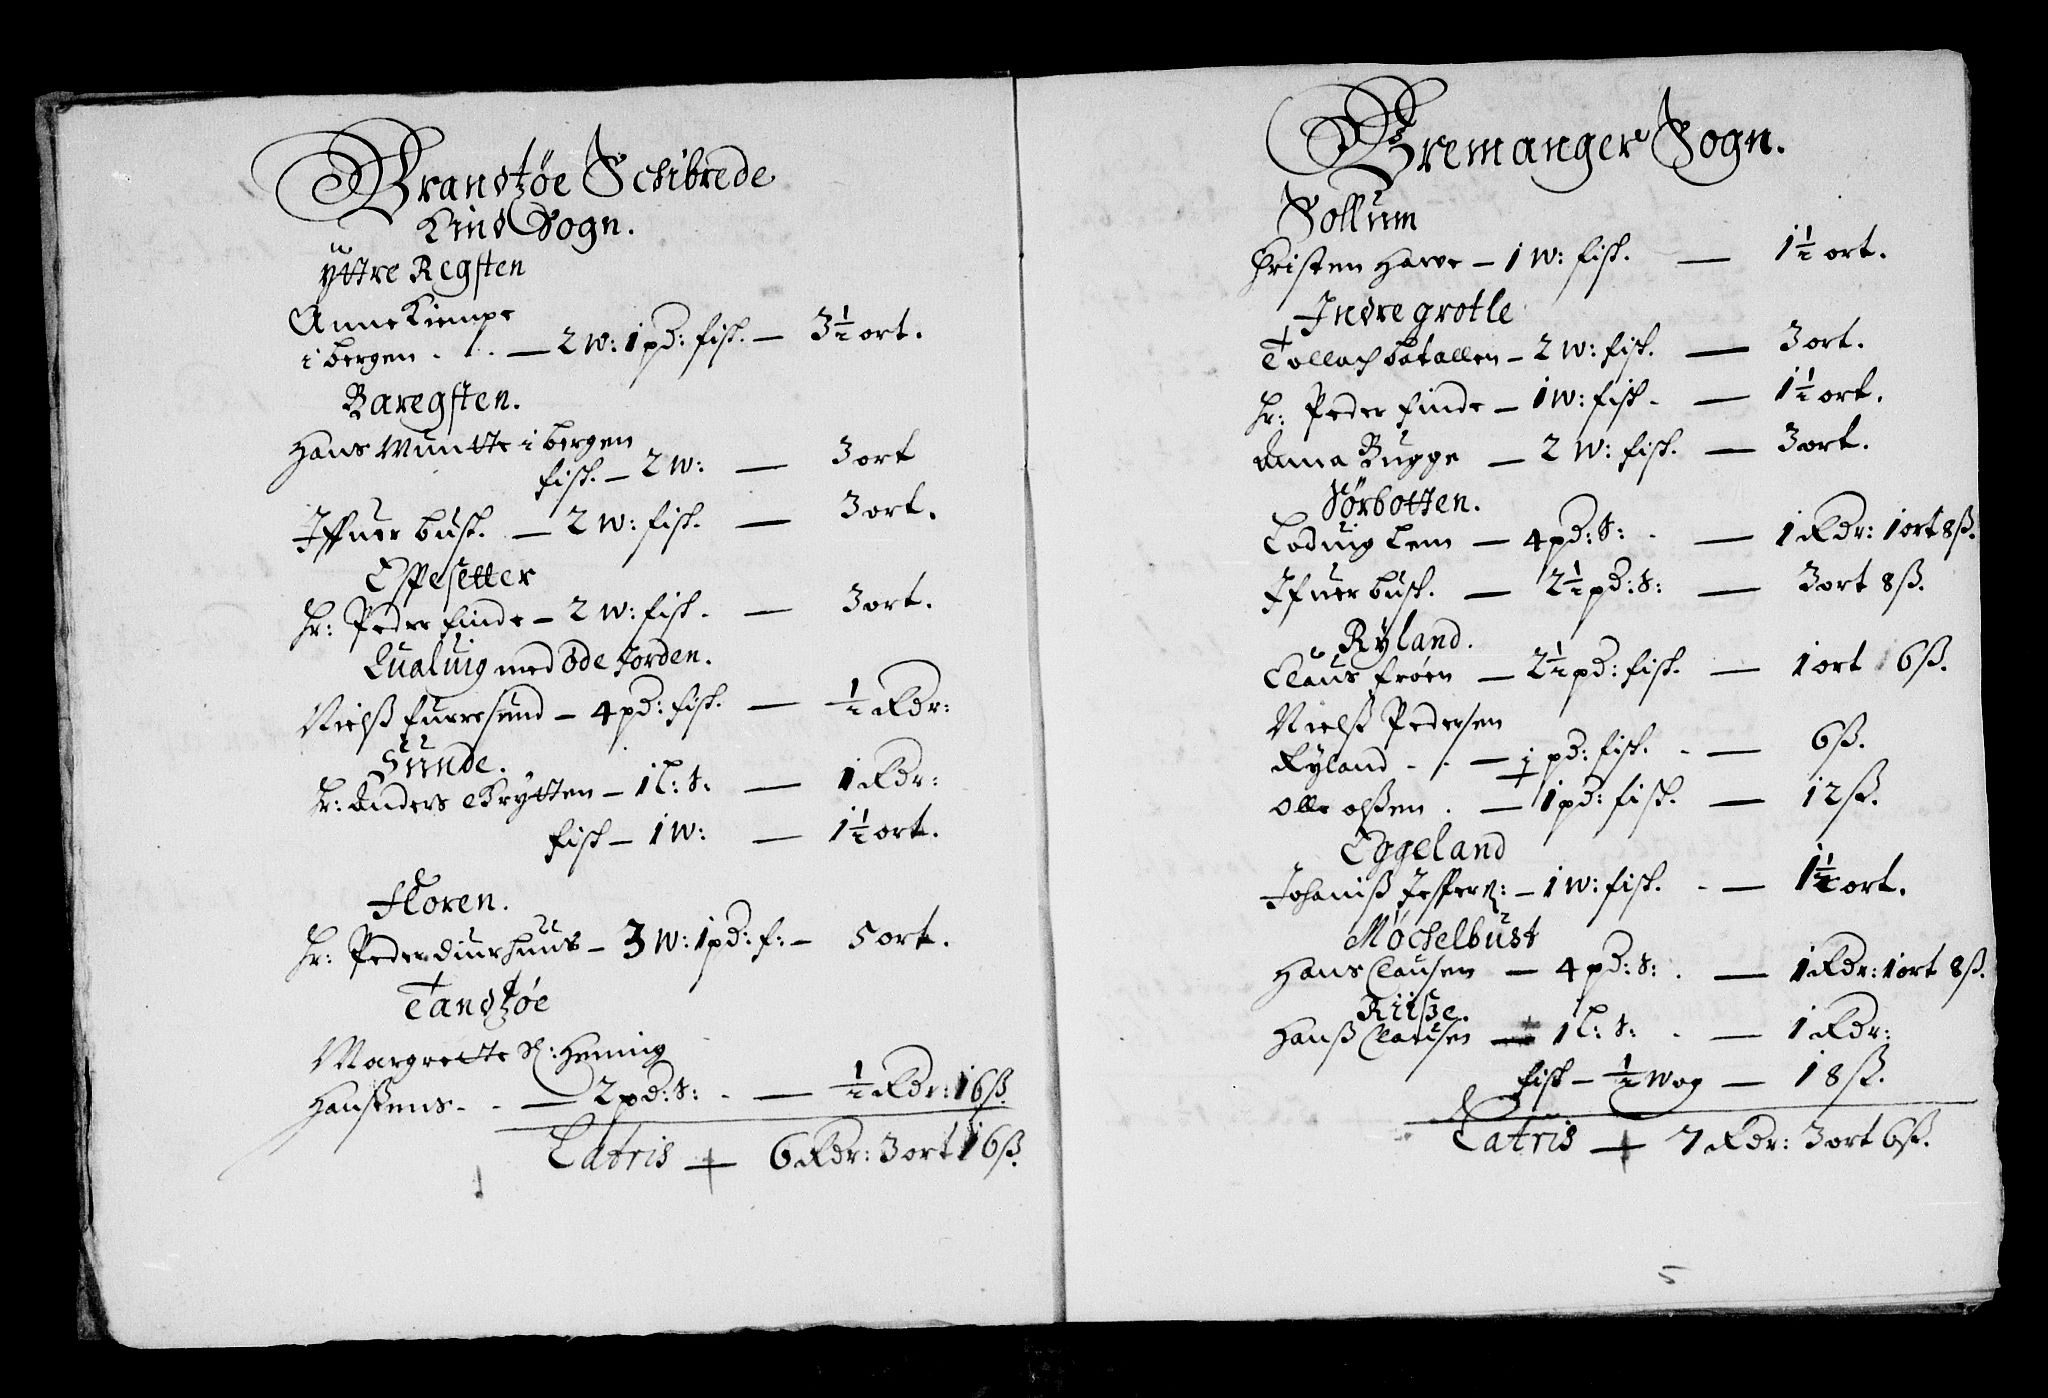 Brandsøe Schibrede
Kind Sogn.
Yttre Regsten
Anne Kiempe
i bergen . . . — 2 W: 1 pd: fisk. — 3½ ort.
Baregsten.
Hans Muntte i bergen
fisk. — 2 W: — 3 ort
Iffuer busk. — 2 W: fisk. — 3 ort.
Espesetter
Hr: Peder finde — 2 W: fisk. — 3 ort.
Qualuig med öde Jorden.
Nielß fuursund — 4 pd: fisk. — ½ Rdr:
Sunde.
Hr: Anders Brytten — 1 l: S: — 1 Rdr:
fisk — 1 W: — 1½ ort.
Floren.
Hr: Peder diurhuus — 3 W: 1 pd: f: — 5 ort.
Tandsøe
Margrette Sl: Hening
Hanßens . . — 2 pd: S: . — ½ Rdr: 16 ß.
Latris — 6 Rdr: 3 ort 16 ß.
Bremanger Sogn.
Sollum
Christen Harve — 1 W: fisk. — 1½ ort.
Indre grotle
Tollach batallen — 2 W: fisk. — 3 ort.
Hr: Peder finde — 1 W: fisk. — 1½ ort.
Anna Bugge — 2 W: fisk. — 3 ort.
Sörbotten.
Loduig Lem — 4 pd: S: . — 1 Rdr: 1 ort 8 ß.
Ifuer busk. — 2½ pd: S: — 3 ort 8 ß.
Ryland.
Claus fröen — 2½ pd: fisk. — 1 ort 6 ß.
Nielß Pedersen
Ryland . . — ½ pd: fisk. . — 6 ß.
Olle olßen . — 1 pd: fisk. — 12 ß.
Eggeland
Johaniß Jesperß: — 1 W: fisk. . — 1½ ort.
Möckelbust
Hans Clausen — 4 pd: S: . — 1 Rdr: 1 ort 8 ß.
Riiße.
Hanß Clausen — 1 l: S: . — 1 Rdr:
fisk — ½ Wog — 18 ß.
Latris — 7 Rdr: 3 ort 6 ß.
5